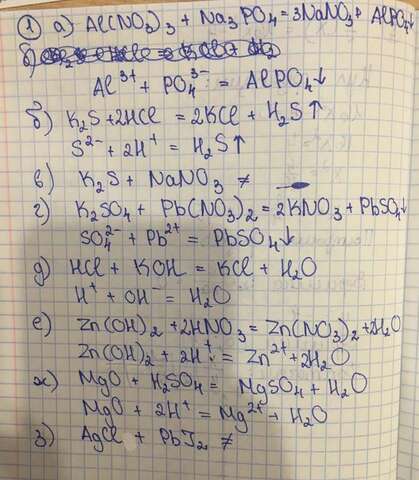 ① а) Al(NO₃)₃ + Na₃PO₄ = 3NaNO₃ + AlPO₄↓
Al³⁺ + PO₄³⁻ = AlPO₄↓
б) K₂S + 2HCl = 2KCl + H₂S↑
S²⁻ + 2H⁺ = H₂S↑
в) K₂S + NaNO₃ ≠
г) K₂SO₄ + Pb(NO₃)₂ = 2KNO₃ + PbSO₄↓
SO₄²⁻ + Pb²⁺ = PbSO₄↓
д) HCl + KOH = KCl + H₂O
H⁺ + OH⁻ = H₂O
е) Zn(OH)₂ + 2HNO₃ = Zn(NO₃)₂ + 2H₂O
Zn(OH)₂ + 2H⁺ = Zn²⁺ + 2H₂O
ж) MgO + H₂SO₄ = MgSO₄ + H₂O
MgO + 2H⁺ = Mg²⁺ + H₂O
з) AgCl + PbJ₂ ≠